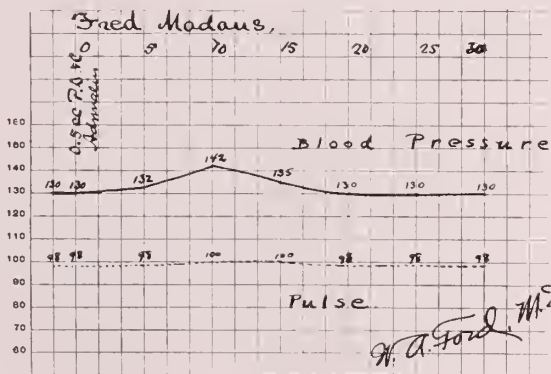 Fred Madaus,
0 5 10 15 20 25 30
0.5 cc P.D. &
Adrenalin
160
150
140
130
120
110
100
90
80
70
60
Blood Pressure
130 130 132 142 135 130 130 130
98 98 98 100 100 98 98 98
Pulse
W. A. Ford, M.D.